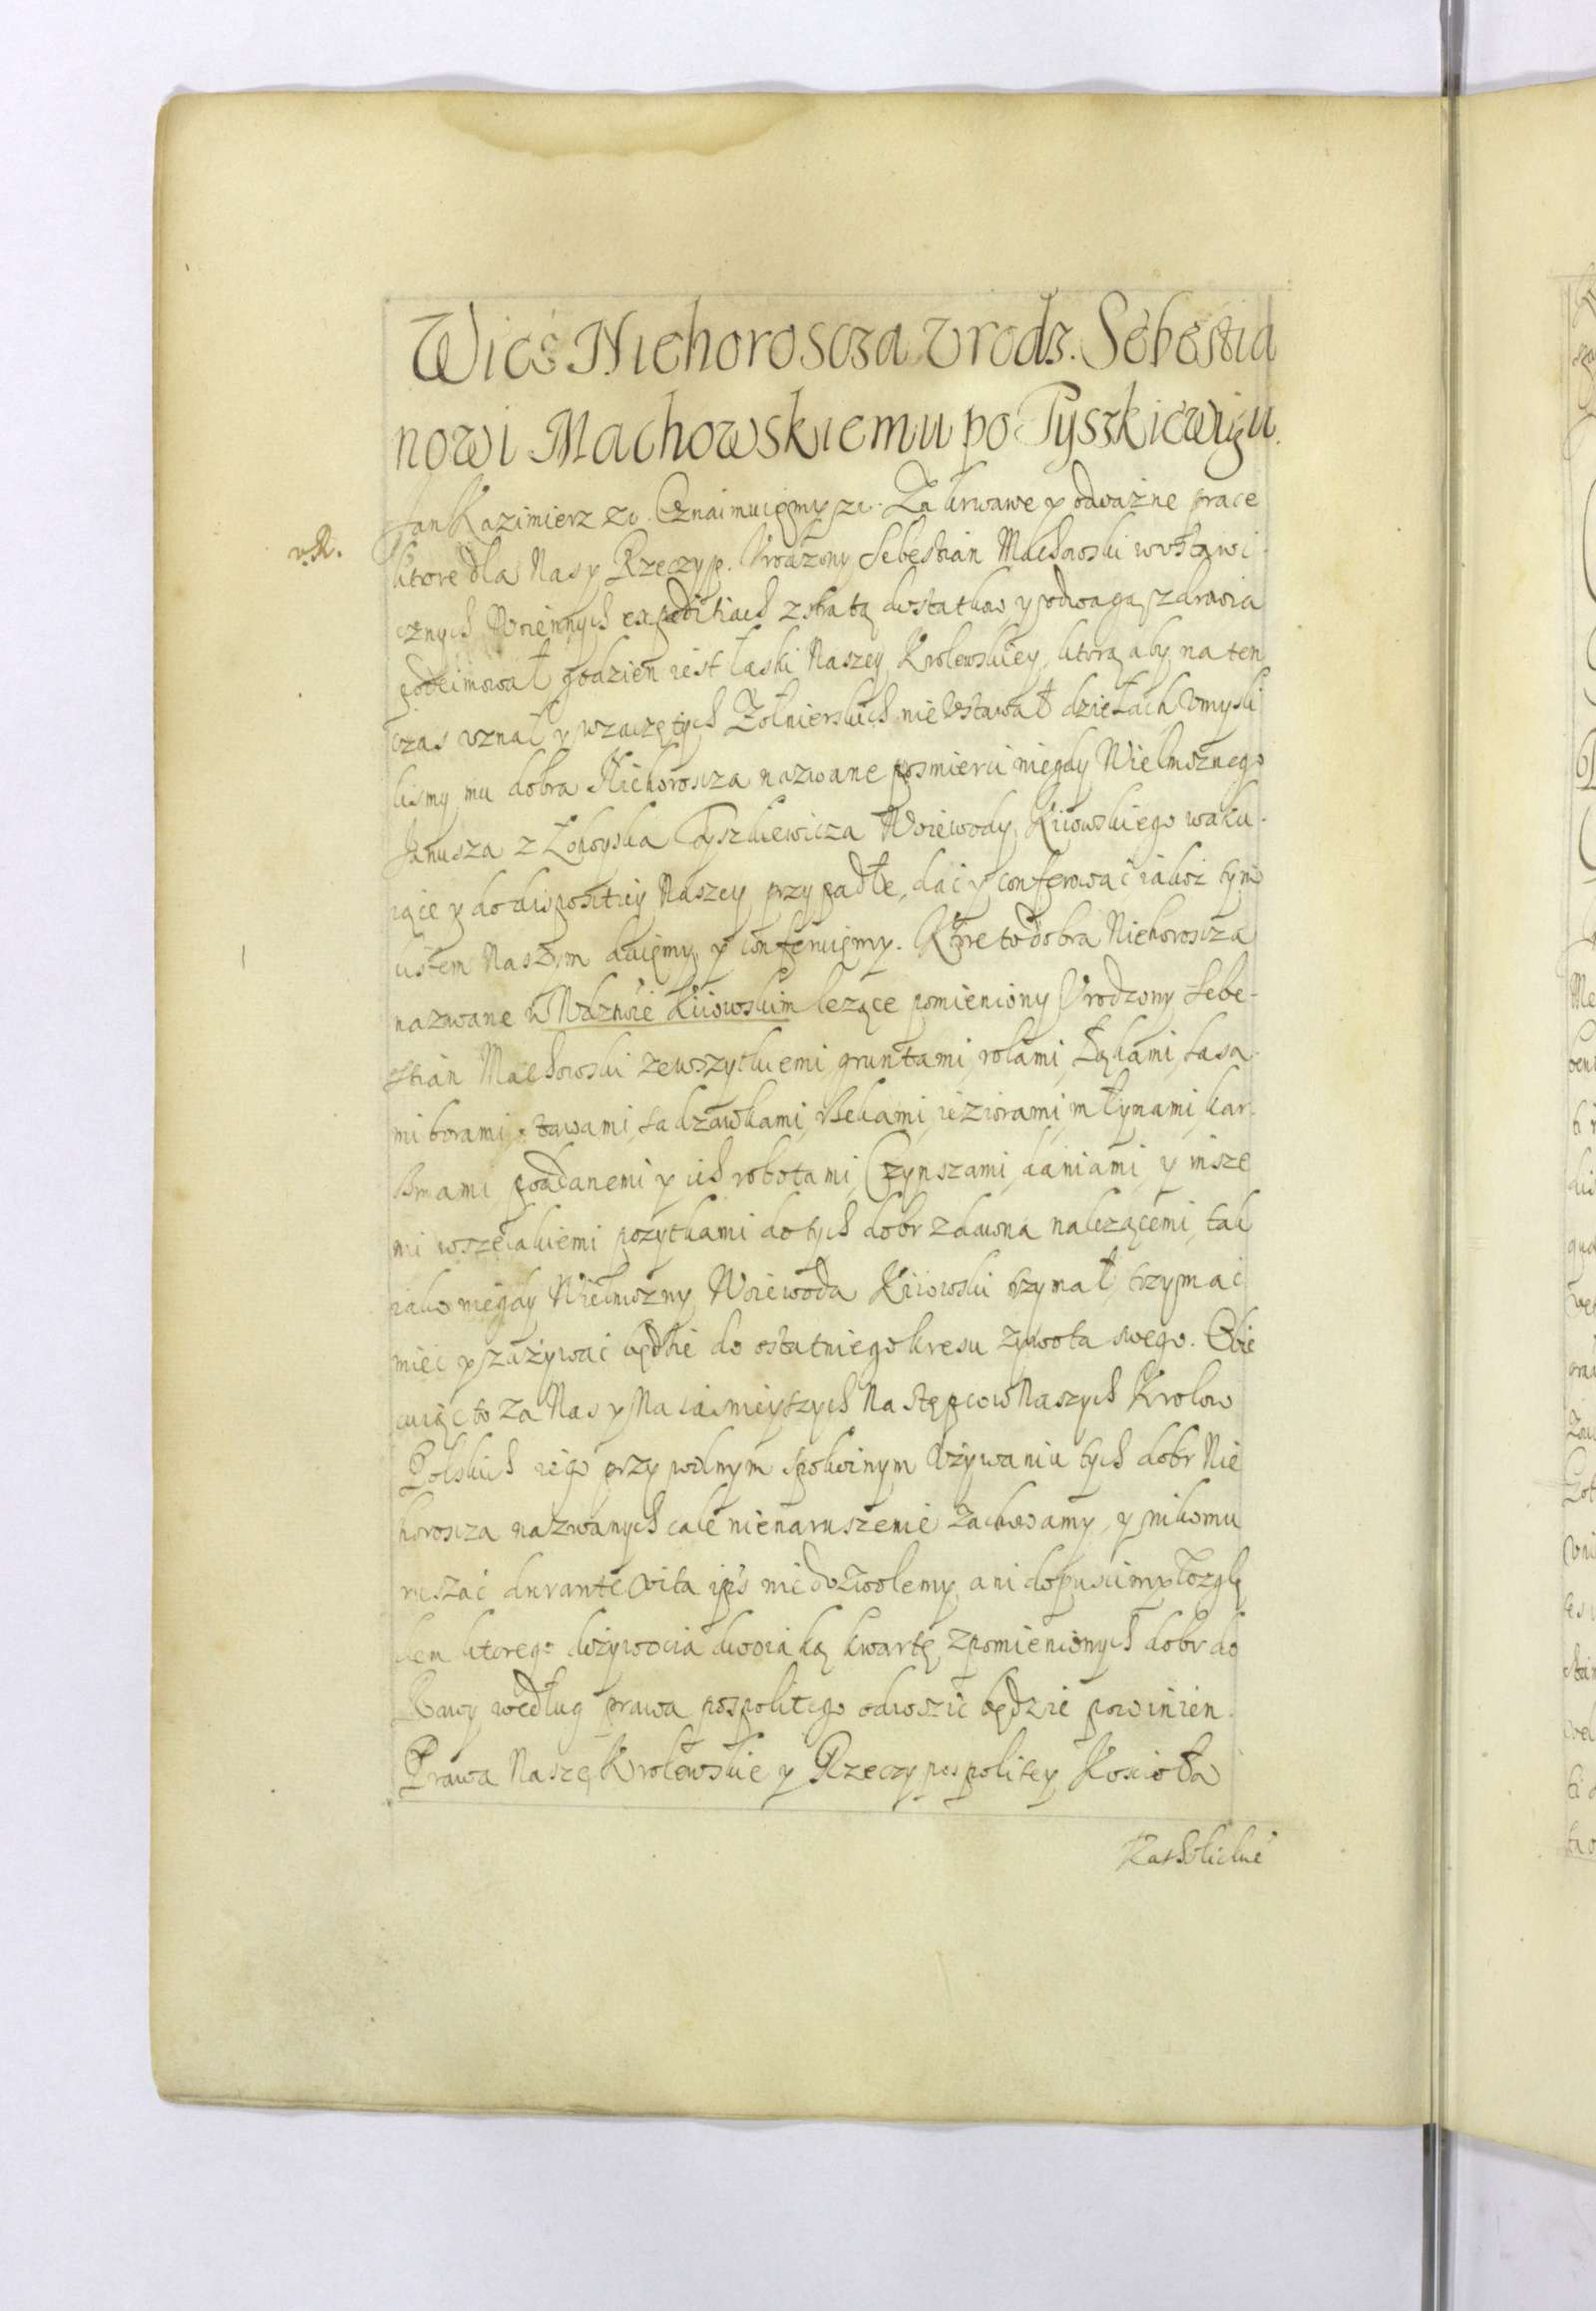 Wieś Niehoroscza Vrodz. Sebestia
nowi Machowskiemu po Tyszkiewiczu.
Jan Kazimierz &c. Oznaimuięmy &c. Za krwawe y odważne prace
v.R.
ktore dla Nas y Rzeczyp. Vrodzony Sebestian Machowski wvstawi-
cznych Woiennych expeditiach z stratą dostatkow y odwagą zdrowia
podeimował godzien iest łaski Naszey Krolewskiey, ktorą aby na ten
czas vznał y wzaczętych Żołnierskich nie vstawał dziełach Vmysli
lismy mu dobra Niehoroscza nazwane posmierci niegdy Wielmożnego
Janusza z Łohoyska Tyszkiewicza Woiewody Kiiowskiego waku-
iące y do dispositiey Naszey przypadłe, dać y conferować iakoż tym
listem Naszym daięmy y conferuięmy. Ktore to dobra Niehoroscza
nazwane w Wdztwie Kiiowskim leżące pomieniony Vrodzony Sebe-
stian Machowski zewszytkiemi gruntami, rolami, Łąkami, Lasa-
mi borami, stawami, sadzawkami, Rzekami, ieziorami, młynami, kar-
czmami, poddanemi y ich robotami, Czynszami, daniami, y insze
mi wszelakiemi pożytkami do tych dobr zdawna należącemi, tak
iako niegdy Wielmożny Woiewoda Kiiowski trzymał, trzymać
mieć y zażywać będzie do ostatniego kresu żywota swego. Obie
cuiąc to za Nas y Naiasnieyszych Następcow Naszych Krolow
Polskich iego przy wolnym spokoinym Vżywaniu tych dobr Nie
horoscza nazwanych cale nienaruszenie zachowamy, y nikomu
ruszać durante vita ips nie dozwolemy ani dopuscimy Wzglę
dem ktorego dożywocia dwoiaką kwartę zpomienionych dobr do
Rawy według prawa pospolitego odnosić będzie powinien.
Prawa Nasze Krolewskie y Rzeczypospolitey Koscioła
Katholickie